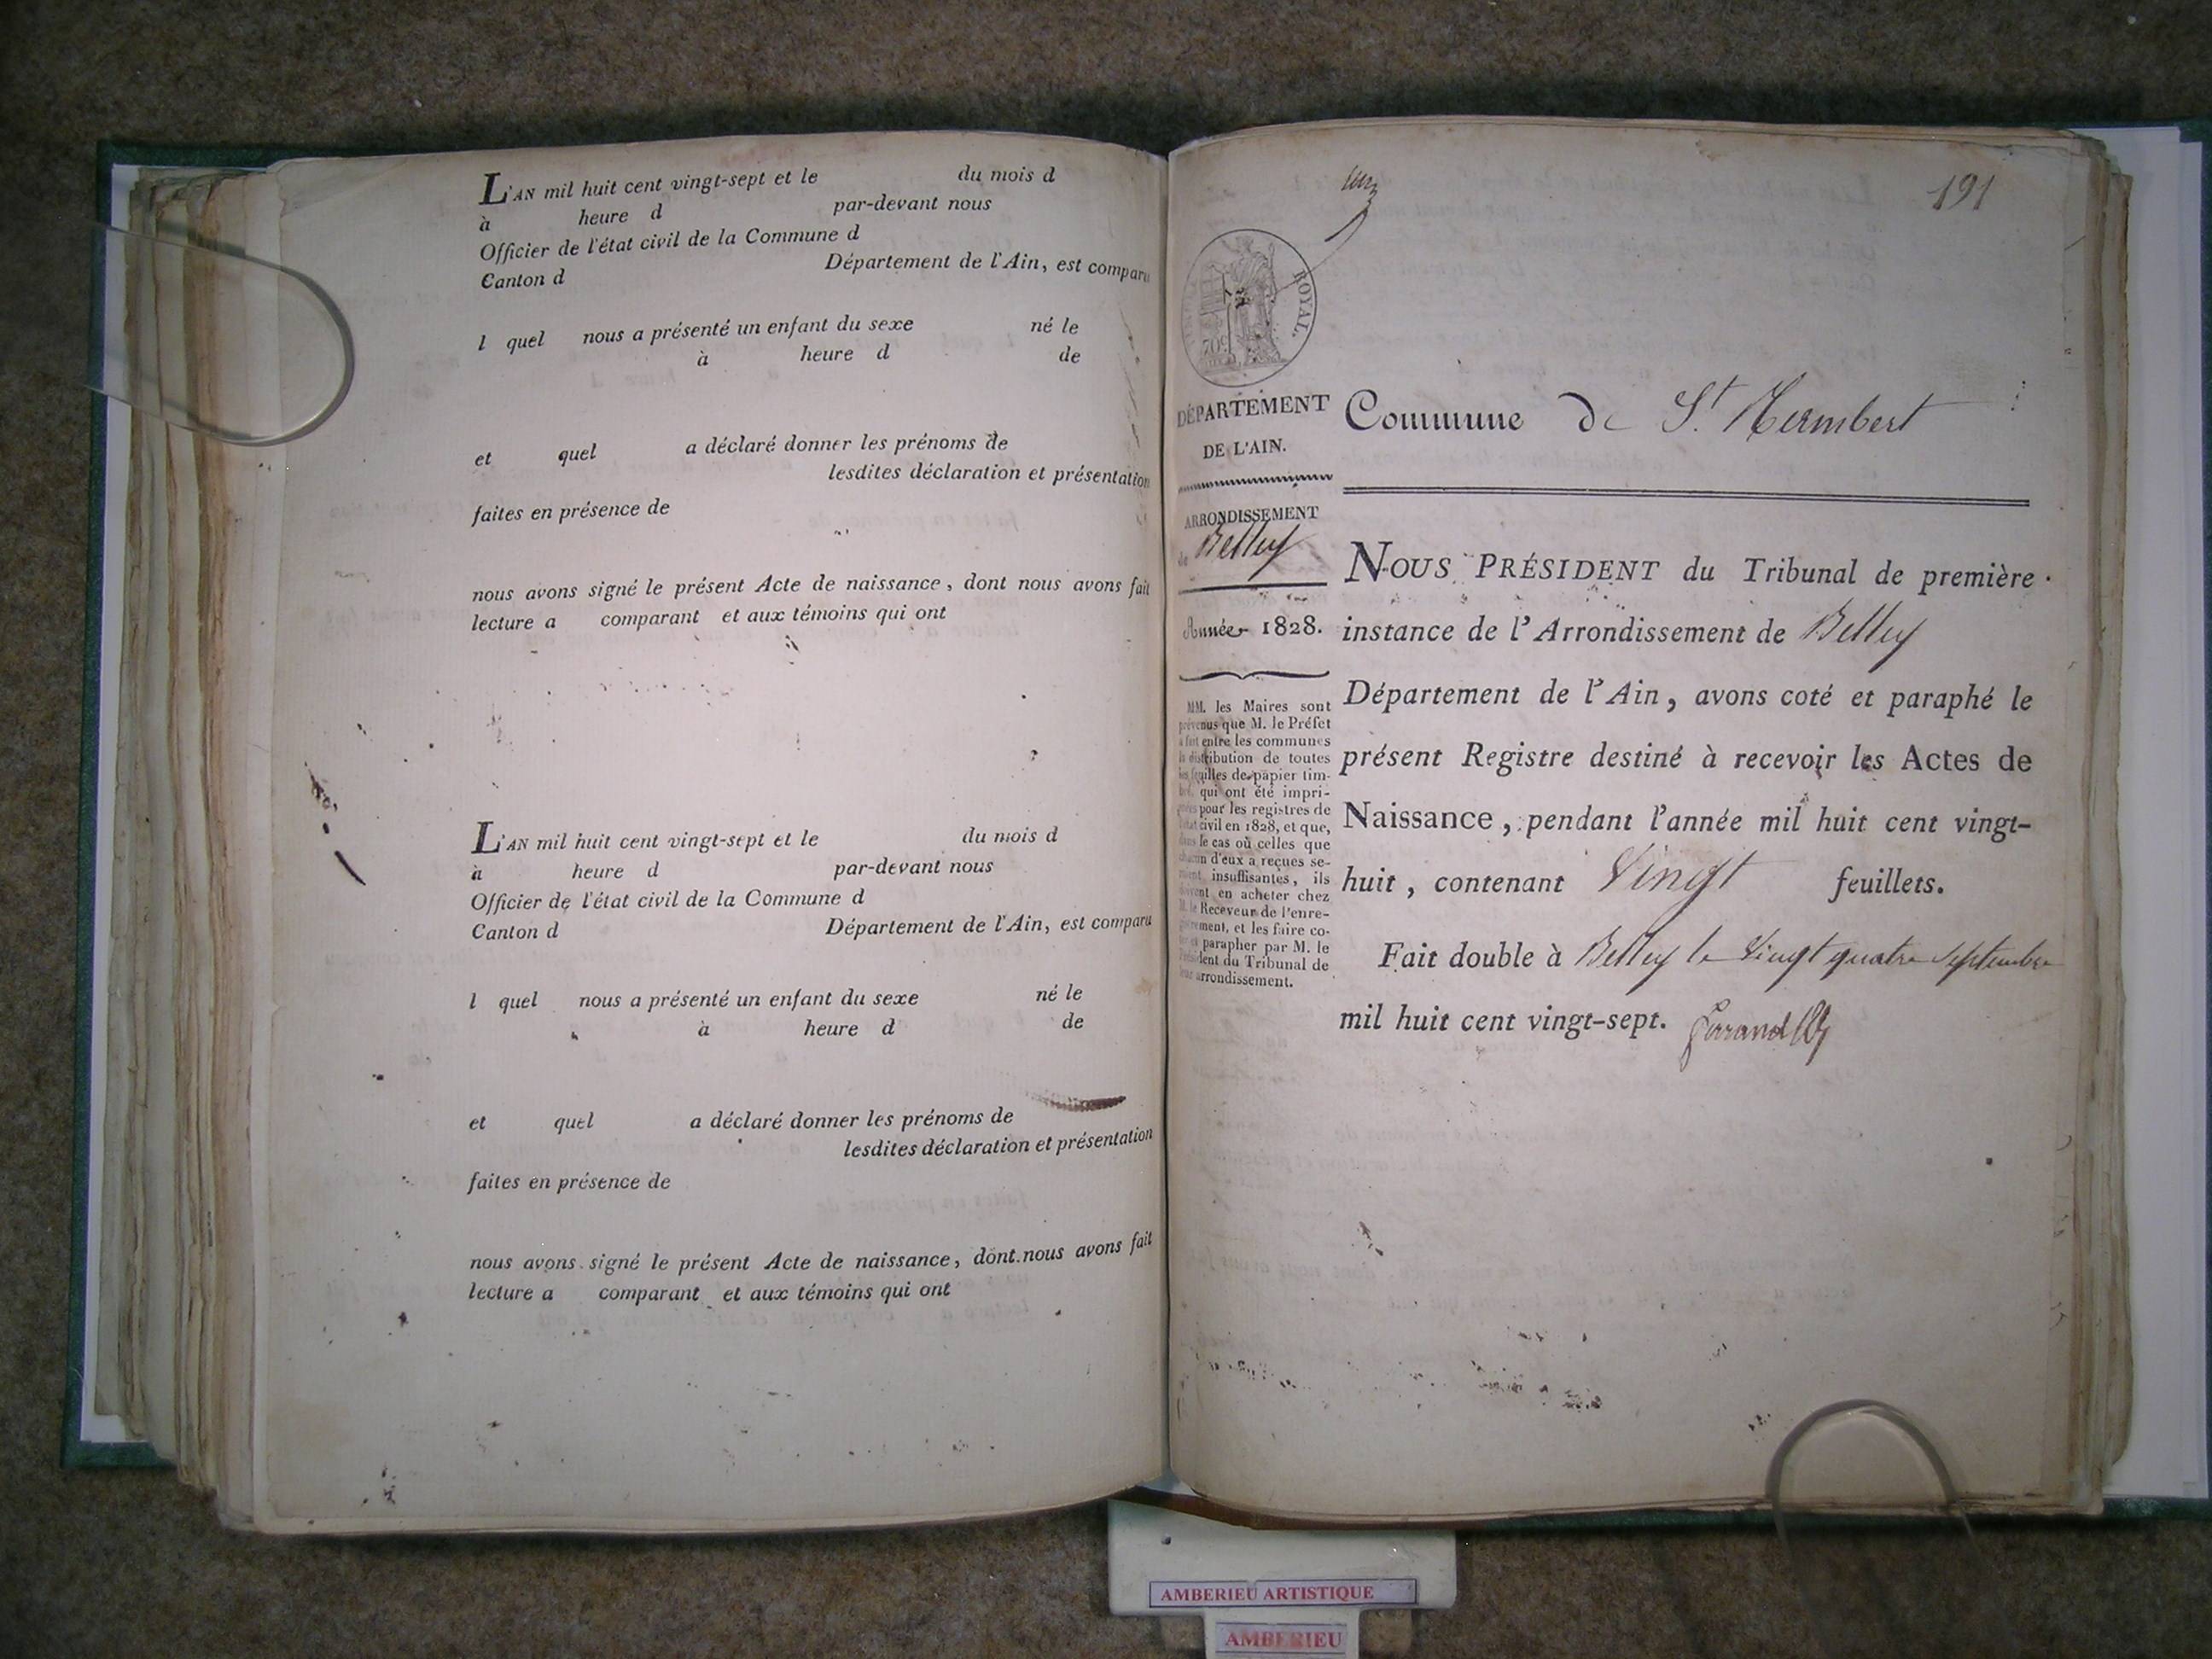 L'AN mil huit cent vingt-sept et le du mois d
à heure d par-devant nous
Officier de l'état civil de la Commune d
Canton d Département de l'Ain, est comparu
l quel nous a présenté un enfant du sexe né le
à heure d de
et quel a déclaré donner les prénoms de
lesdites déclaration et présentation
faites en présence de
nous avons signé le présent Acte de naissance, dont nous avons fait
lecture a comparant et aux témoins qui ont
L'AN mil huit cent vingt-sept et le du mois d
à heure d par-devant nous
Officier de l'état civil de la Commune d
Canton d Département de l'Ain, est comparu
l quel nous a présenté un enfant du sexe né le
à heure d de
et quel a déclaré donner les prénoms de
lesdites déclaration et présentation
faites en présence de
nous avons signé le présent Acte de naissance, dont nous avons fait
lecture a comparant et aux témoins qui ont
191
ROYAL.
DÉPARTEMENT
DE L'AIN.
ARRONDISSEMENT
de Belley
Année 1828.
MM. les Maires sont
prévenus que M. le Préfet
a fait entre les communes
la distribution de toutes
les feuilles de papier tim-
bré, qui ont été impri-
mées pour les registres de
l'état civil en 1828, et que,
dans le cas où celles que
chacun d'eux a reçues se-
roient insuffisantes, ils
doivent en acheter chez
M. le Receveur de l'enre-
gistrement, et les faire co-
ter et parapher par M. le
Président du Tribunal de
leur arrondissement.
Commune de St Rambert
NOUS PRÉSIDENT du Tribunal de première
instance de l'Arrondissement de Belley
Département de l'Ain, avons coté et paraphé le
présent Registre destiné à recevoir les Actes de
Naissance, pendant l'année mil huit cent vingt-
huit, contenant Vingt feuillets.
Fait double à Belley le Vingt quatre Septembre
mil huit cent vingt-sept.
AMBERIEU ARTISTIQUE
AMBERIEU